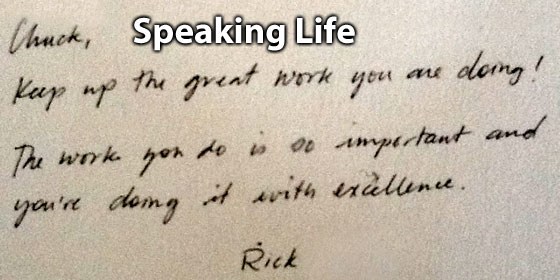 Speaking Life
Chuck,
Keep up the great work you are doing!
The work you do is so important and
you're doing it with excellence.
Rick